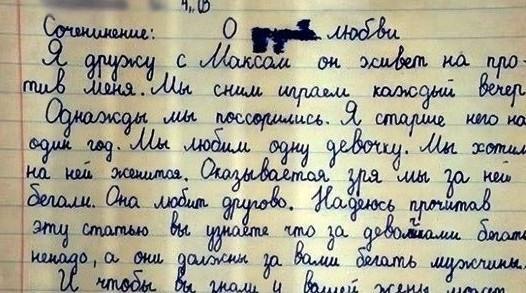 4 "В"
Сочининение: О любви
Я дружу с Максам он живет на про-
тив меня. Мы сним играем каждый вечер
Однажды мы поссорились. Я старше него на
один год. Мы любим одну девочку. Мы хотим
на ней женится. Оказывается зря мы за ней
бегали. Она любит другово. Надеюс прочитав
эту статью вы узнаете что за девочками бегать
ненадо, а они должны за вами бегать мужчины.
И чтобы вы знали у вашей жены может